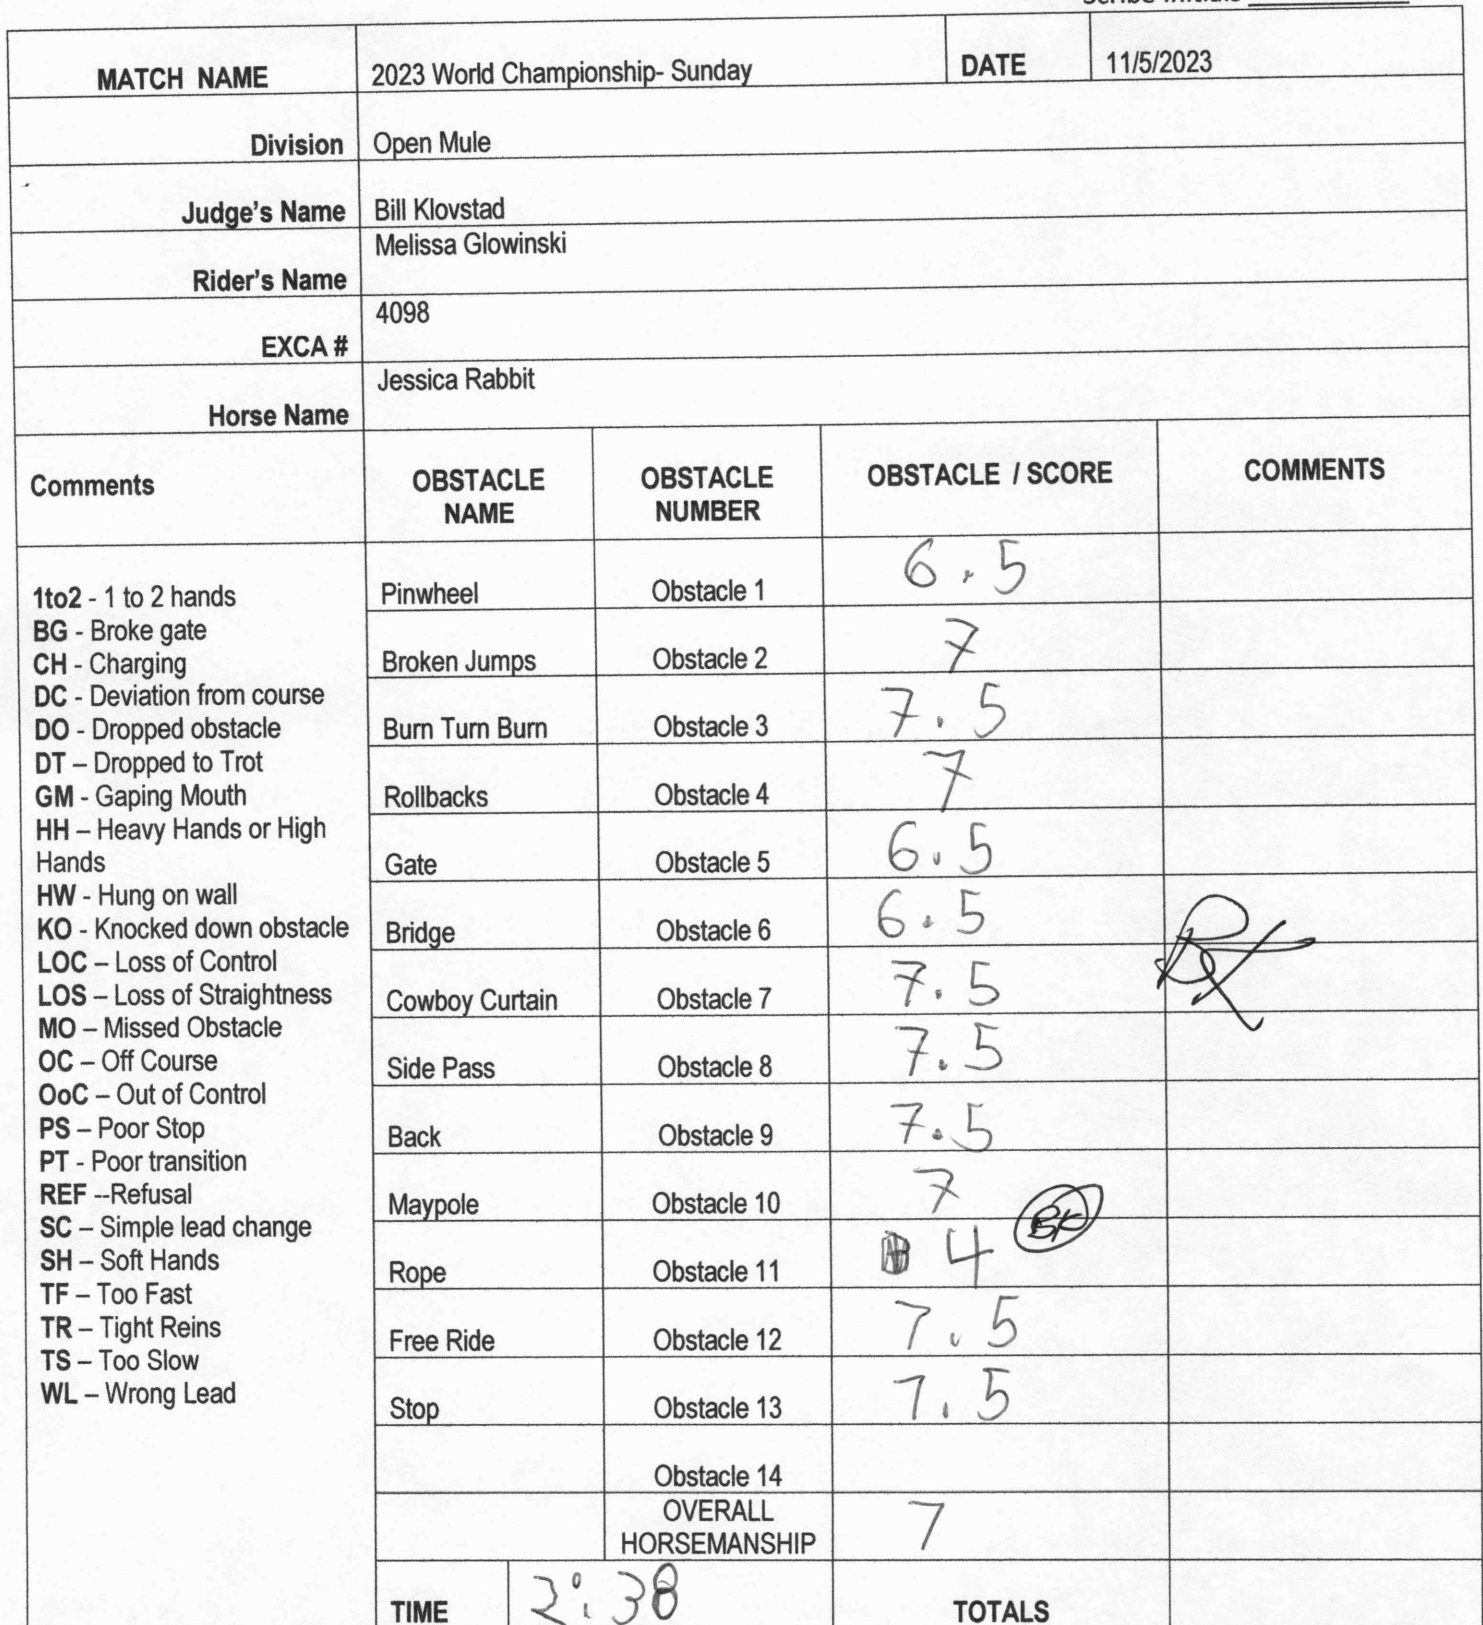 MATCH NAME 2023 World Championship- Sunday DATE 11/5/2023
Division Open Mule
Judge's Name Bill Klovstad
Melissa Glowinski
Rider's Name
4098
EXCA #
Jessica Rabbit
Horse Name
Comments OBSTACLE NAME OBSTACLE NUMBER OBSTACLE / SCORE COMMENTS
1to2 - 1 to 2 hands
BG - Broke gate
CH - Charging
DC - Deviation from course
DO - Dropped obstacle
DT – Dropped to Trot
GM - Gaping Mouth
HH – Heavy Hands or High
Hands
HW - Hung on wall
KO - Knocked down obstacle
LOC – Loss of Control
LOS – Loss of Straightness
MO – Missed Obstacle
OC – Off Course
OoC – Out of Control
PS – Poor Stop
PT - Poor transition
REF --Refusal
SC – Simple lead change
SH – Soft Hands
TF – Too Fast
TR – Tight Reins
TS – Too Slow
WL – Wrong Lead
Pinwheel Obstacle 1 6.5
Broken Jumps Obstacle 2 7
Burn Turn Burn Obstacle 3 7.5
Rollbacks Obstacle 4 7
Gate Obstacle 5 6.5
Bridge Obstacle 6 6.5
Cowboy Curtain Obstacle 7 7.5
Side Pass Obstacle 8 7.5
Back Obstacle 9 7.5
Maypole Obstacle 10 7
Rope Obstacle 11 4 BK
Free Ride Obstacle 12 7.5
Stop Obstacle 13 7.5
Obstacle 14
OVERALL
HORSEMANSHIP 7
TIME 2:38 TOTALS